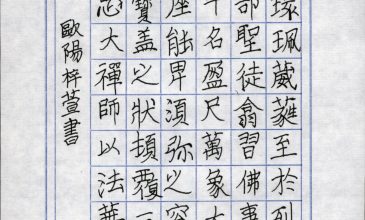 環珮葳蕤至於列
部聖徒翕習佛事
千名盈尺萬象大
座能卑須彌之容
寶盖之狀頓覆三
思大禪師以法華
歐陽梓萱書